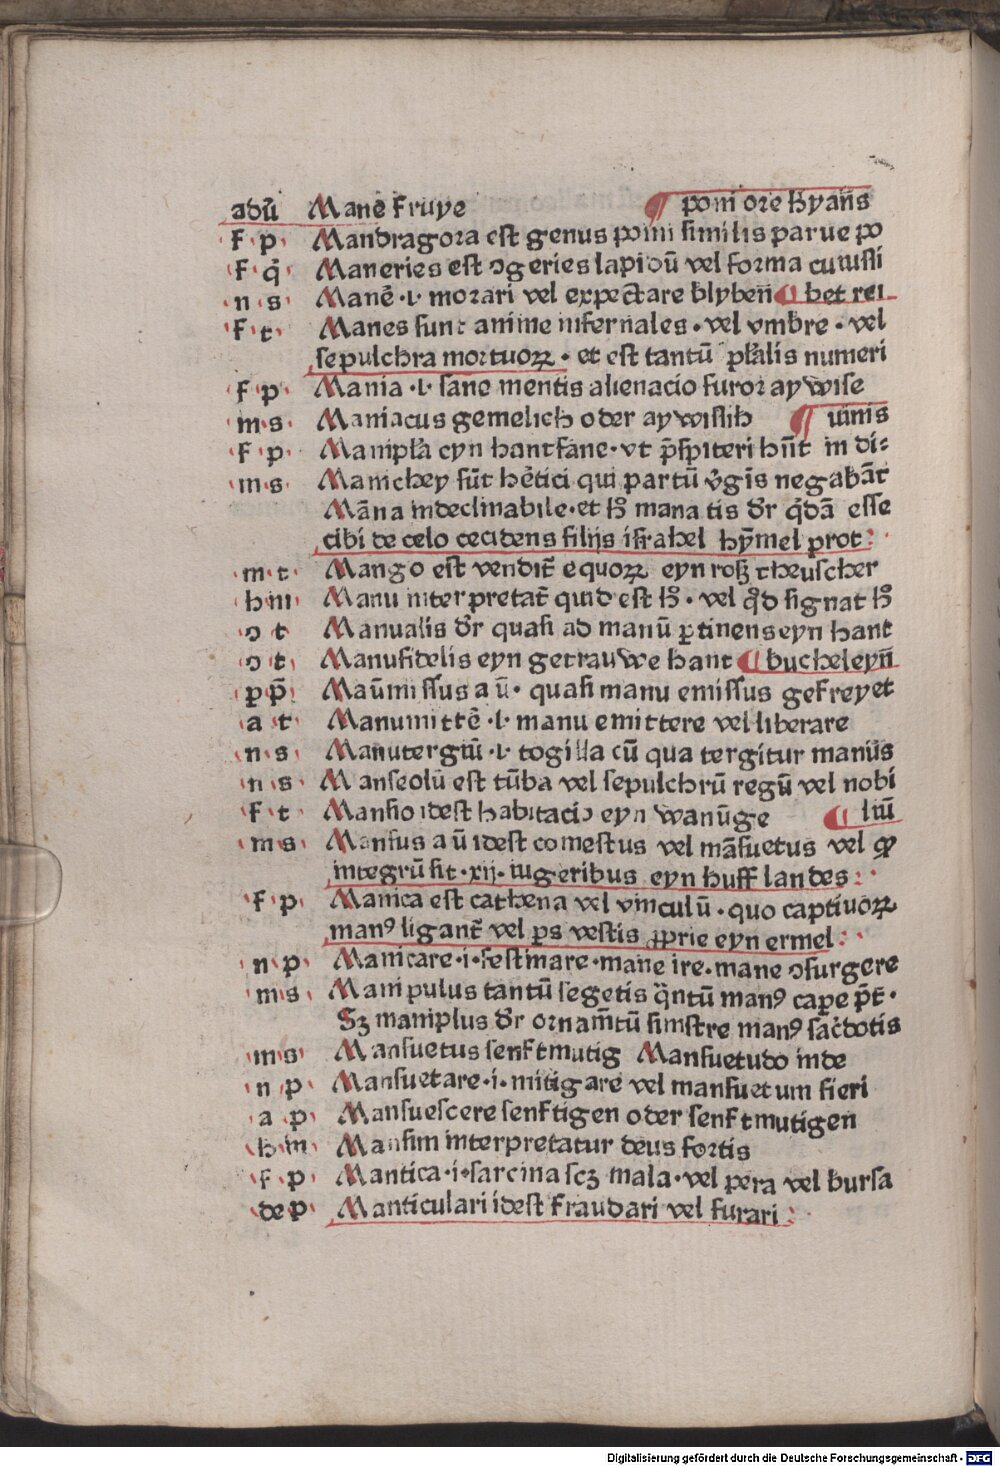 adū Mane fruye ¶ pom ore hyans
f p Mandragora est genus pomi similis parue po
f q̇ Maneries est ɔgeries lapidū vel forma cuiussi
n s Manē ·i· morari vel expectare blyben̄ ¶ bet rei
f t Manes sunt anime infernales · vel vmbre · vel
sepulchra mortuoꝝ · et est tantū pľalis numeri
f p Mania ·i· sane mentis alienacio furor aywise
m s Maniacus gemelich oder aywislih ¶ uinis
f p Manipľa eyn hantfane · vt p̄sp̄iteri hn̄t in di⸗
m s Manichey sūt hētici qui partū v̾gīs negabāt
Māna indeclinabile · et hō mana tis dr̄ q̇dā esse
cibi de celo cecidens filijs israhel hȳmel prot :
m t Mango est vendit̄ equoꝝ eyn roß theuscher
h m Manu interpretat̄ quid est hō · vel qd̄ signat hō
ɔ t Manualis dr̄ quasi ad manū ꝑtinens eyn hant
ɔ t Manufidelis eyn getrauwe hant ¶ bucheleyn̄
p p̄ Maūmissus a ū · quasi manu emissus gefreyet
a t Manumittē ·i· manu emittere vel liberare
n s Manutergiū ·i· togilla cū qua tergitur manus
n s Manseolū est tūba vel sepulchrū regū vel nobi
f t Mansio idest habitacio eyn wanūge ¶ liū
m s Mansus a ū idest comestus vel māsuetus vel ꝙ
integrū sit · xij · iugeribus eyn huff landes :
f p Manica est cathena vel vinculū · quo captiuoꝝ
manꝰ ligant̄ vel ꝑs vestis ꝓprie eyn ermel :
n p Manicare · i · festinare · mane ire · mane ɔsurgere
m s Manipulus tantū segetis q̄ntū manꝰ capere p̄t ·
Sꝫ maniplus dr̄ ornam̄tū sinistre manꝰ sac̄dotis
m s Mansuetus senftmutig Mansuetudo inde
n p Mansuetare · i · mitigare vel mansuetum fieri
a p Mansuescere senftigen oder senftmutigen
h m Mansim interpretatur deus fortis
f p Mantica · i · sarcina scꝫ mala · vel pera vel bursa
de p Manticulari idest fraudari vel furari :
Digitalisierung gefördert durch die Deutsche Forschungsgemeinschaft - DFG